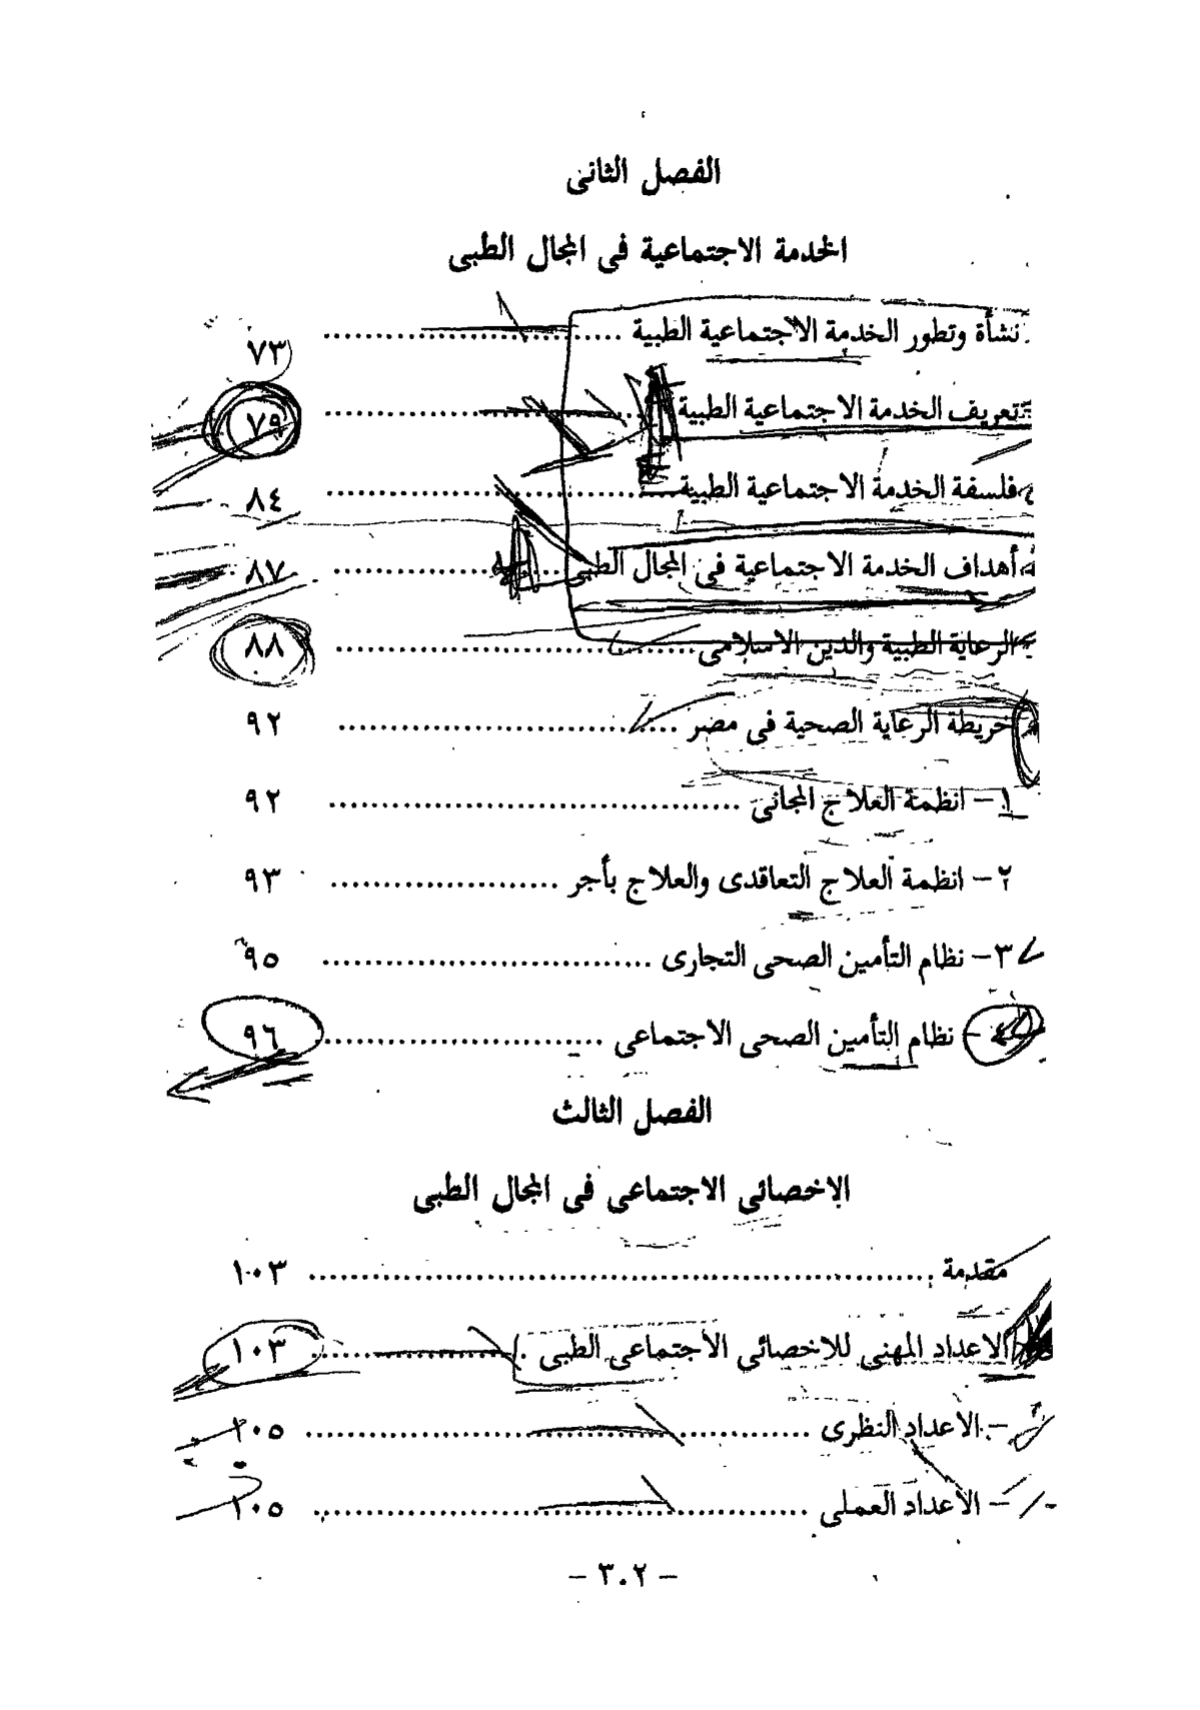 الفصل الثانى
الخدمة الاجتماعية فى المجال الطبى
نشأة وتطور الخدمة الاجتماعية الطبية ............................ ٧٣
تعريف الخدمة الاجتماعية الطبية ............................ ٧٩
فلسفة الخدمة الاجتماعية الطبية ............................ ٨٤
أهداف الخدمة الاجتماعية فى المجال الطبى .................... ٨٧
الرعاية الطبية والدين الاسلامى ............................ ٨٨
خريطة الرعاية الصحية فى مصر ............................ ٩٢
١ – انظمة العلاج المجانى ............................ ٩٢
٢ – انظمة العلاج التعاقدى والعلاج بأجر .................... ٩٣
٣ – نظام التأمين الصحى التجارى ............................ ٩٥
٤ – نظام التأمين الصحى الاجتماعى ............................ ٩٦
الفصل الثالث
الاخصائى الاجتماعى فى المجال الطبى
مقدمة ............................ ١٠٣
الاعداد المهنى للاخصائى الاجتماعى الطبى .................... ١٠٣
– الاعداد النظرى ............................ ١٠٥
– الاعداد العملى ............................ ١٠٥
– ٣٠٢ –